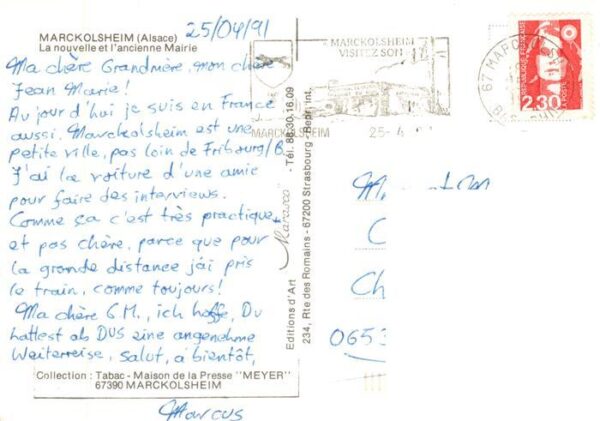 25/04/91
MARCKOLSHEIM (Alsace)
La nouvelle et l'ancienne Mairie
Ma chère Grandmère, mon chère
Jean Marie!
Aujour d'hui je suis en France
aussi. Marckolsheim est une
petite ville, pas loin de Fribourg/B.
J'ai la voiture d'une amie
pour faire des interviews.
Comme ça c'est très pratique
et pas chère, parce que pour
la grande distance j'ai pris
le train, comme toujours!
Ma chère G.M., ich hoffe, Du
hattest ab DUS eine angenehme
Weiterreise, salut, à bientôt,
Collection : Tabac - Maison de la Presse "MEYER"
67390 MARCKOLSHEIM
Marcus
Editions d'Art - Tél. 88.30.16.09
234, Rte des Romains - 67200 Strasbourg - Repr. int.
MARCKOLSHEIM
VISITEZ SON
MARCKOLSHEIM
25- 4
67 MARC
REPUBLIQUE FRANÇAISE
LA POSTE
2,30
C
Ch
0653